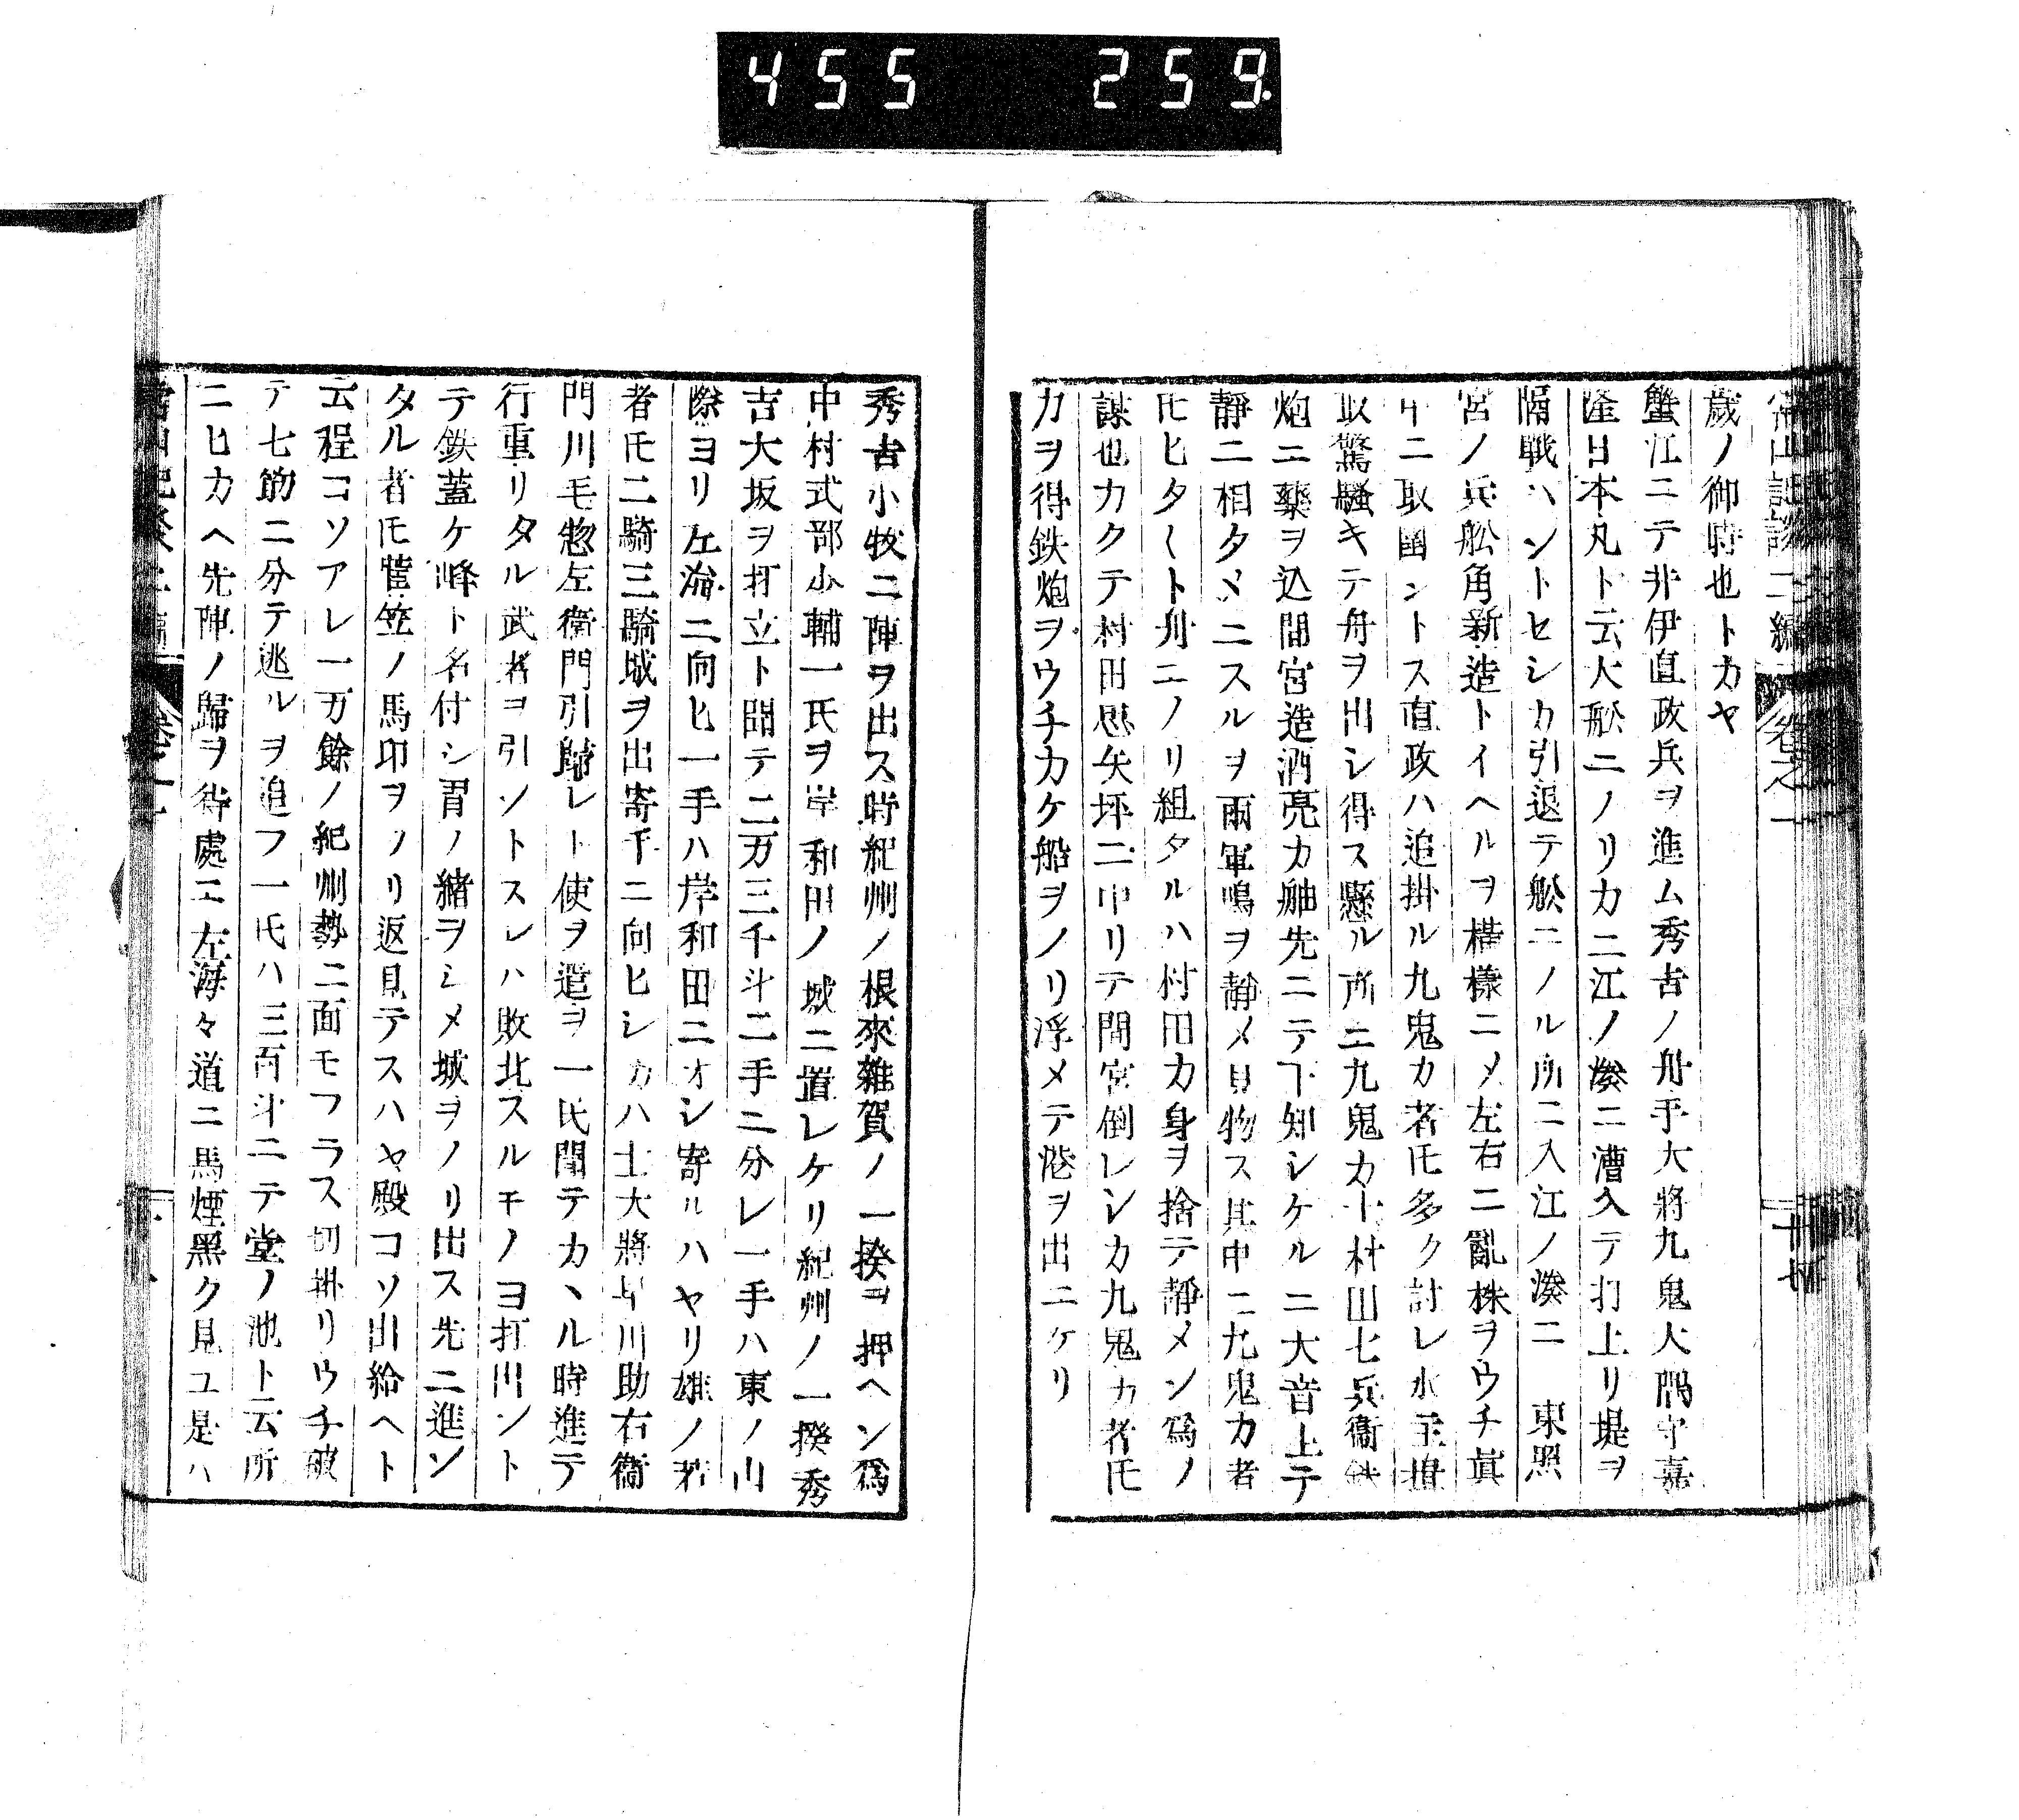 455 259.
歳ノ御時也トカヤ
蟹江ニテ井伊直政兵ヲ進ム秀吉ノ舟手大將九鬼大隅守嘉
隆日本丸ト云大舩ニノリカニ江ノ湊ニ漕入テ打上リ堤ヲ
隔戰ハントセシカ引退テ舩ニノル所ニ入江ノ湊ニ 東照
宮ノ兵舩角新造トイヘルヲ横樣ニメ左右ニ亂株ヲウチ眞
中ニ取圍ントス直政ハ追掛ル九鬼カ者𪜈多ク討レ水主楫
取驚騒キテ舟ヲ出シ得ス懸ル所ニ九鬼カ士村田七兵衞鉄
炮ニ藥ヲ込間宮造酒亮カ舳先ニテ下知シケルニ大音上テ
靜ニ相タメニスルヲ兩軍鳴ヲ靜メ見物ス其中ニ九鬼カ者
𪜈ヒタ〱ト舟ニノリ組タルハ村田カ身ヲ捨テ靜メン爲ノ
謀也カクテ村田思矢坪ニ中リテ間宮倒レンカ九鬼カ者𪜈
カヲ得鉄炮ヲウチカケ船ヲノリ浮メテ港ヲ出ニケリ
秀吉小牧ニ陣ヲ出ス時紀州ノ根來雜賀ノ一揆ヲ押ヘン爲
中村式部少輔一氏ヲ岸和田ノ城ニ置レケリ紀州ノ一揆秀
吉大坂ヲ打立ト聞テ二万三千斗二手ニ分レ一手ハ東ノ山
際ヨリ左海ニ向ヒ一手ハ岸和田ニオシ寄ルハヤリ雄ノ若
者𪜈二騎三騎城ヲ出寄手ニ向ヒシカハ士大將早川助右衞
門川毛惣左衞門引歸レト使ヲ遣ヲ一氏聞テカヽル時進テ
行重リタル武者ヲ引ントスレハ敗北スルモノヨ打出ント
テ鉄蓋ケ峰ト名付シ冑ノ緒ヲシメ城ヲノリ出ス先ニ進ン
タル者𪜈菅笠ノ馬印ヲノリ返見テスハヤ殿コソ出給ヘト
云程コソアレ一万餘ノ紀州勢ニ面モフラス切掛リウチ破
テ七筋ニ分テ逃ルヲ追フ一氏ハ三百斗ニテ堂ノ池ト云所
ニヒカヘ先陣ノ歸ヲ待處ニ左海々道ニ馬煙黑ク見ユ是ハ